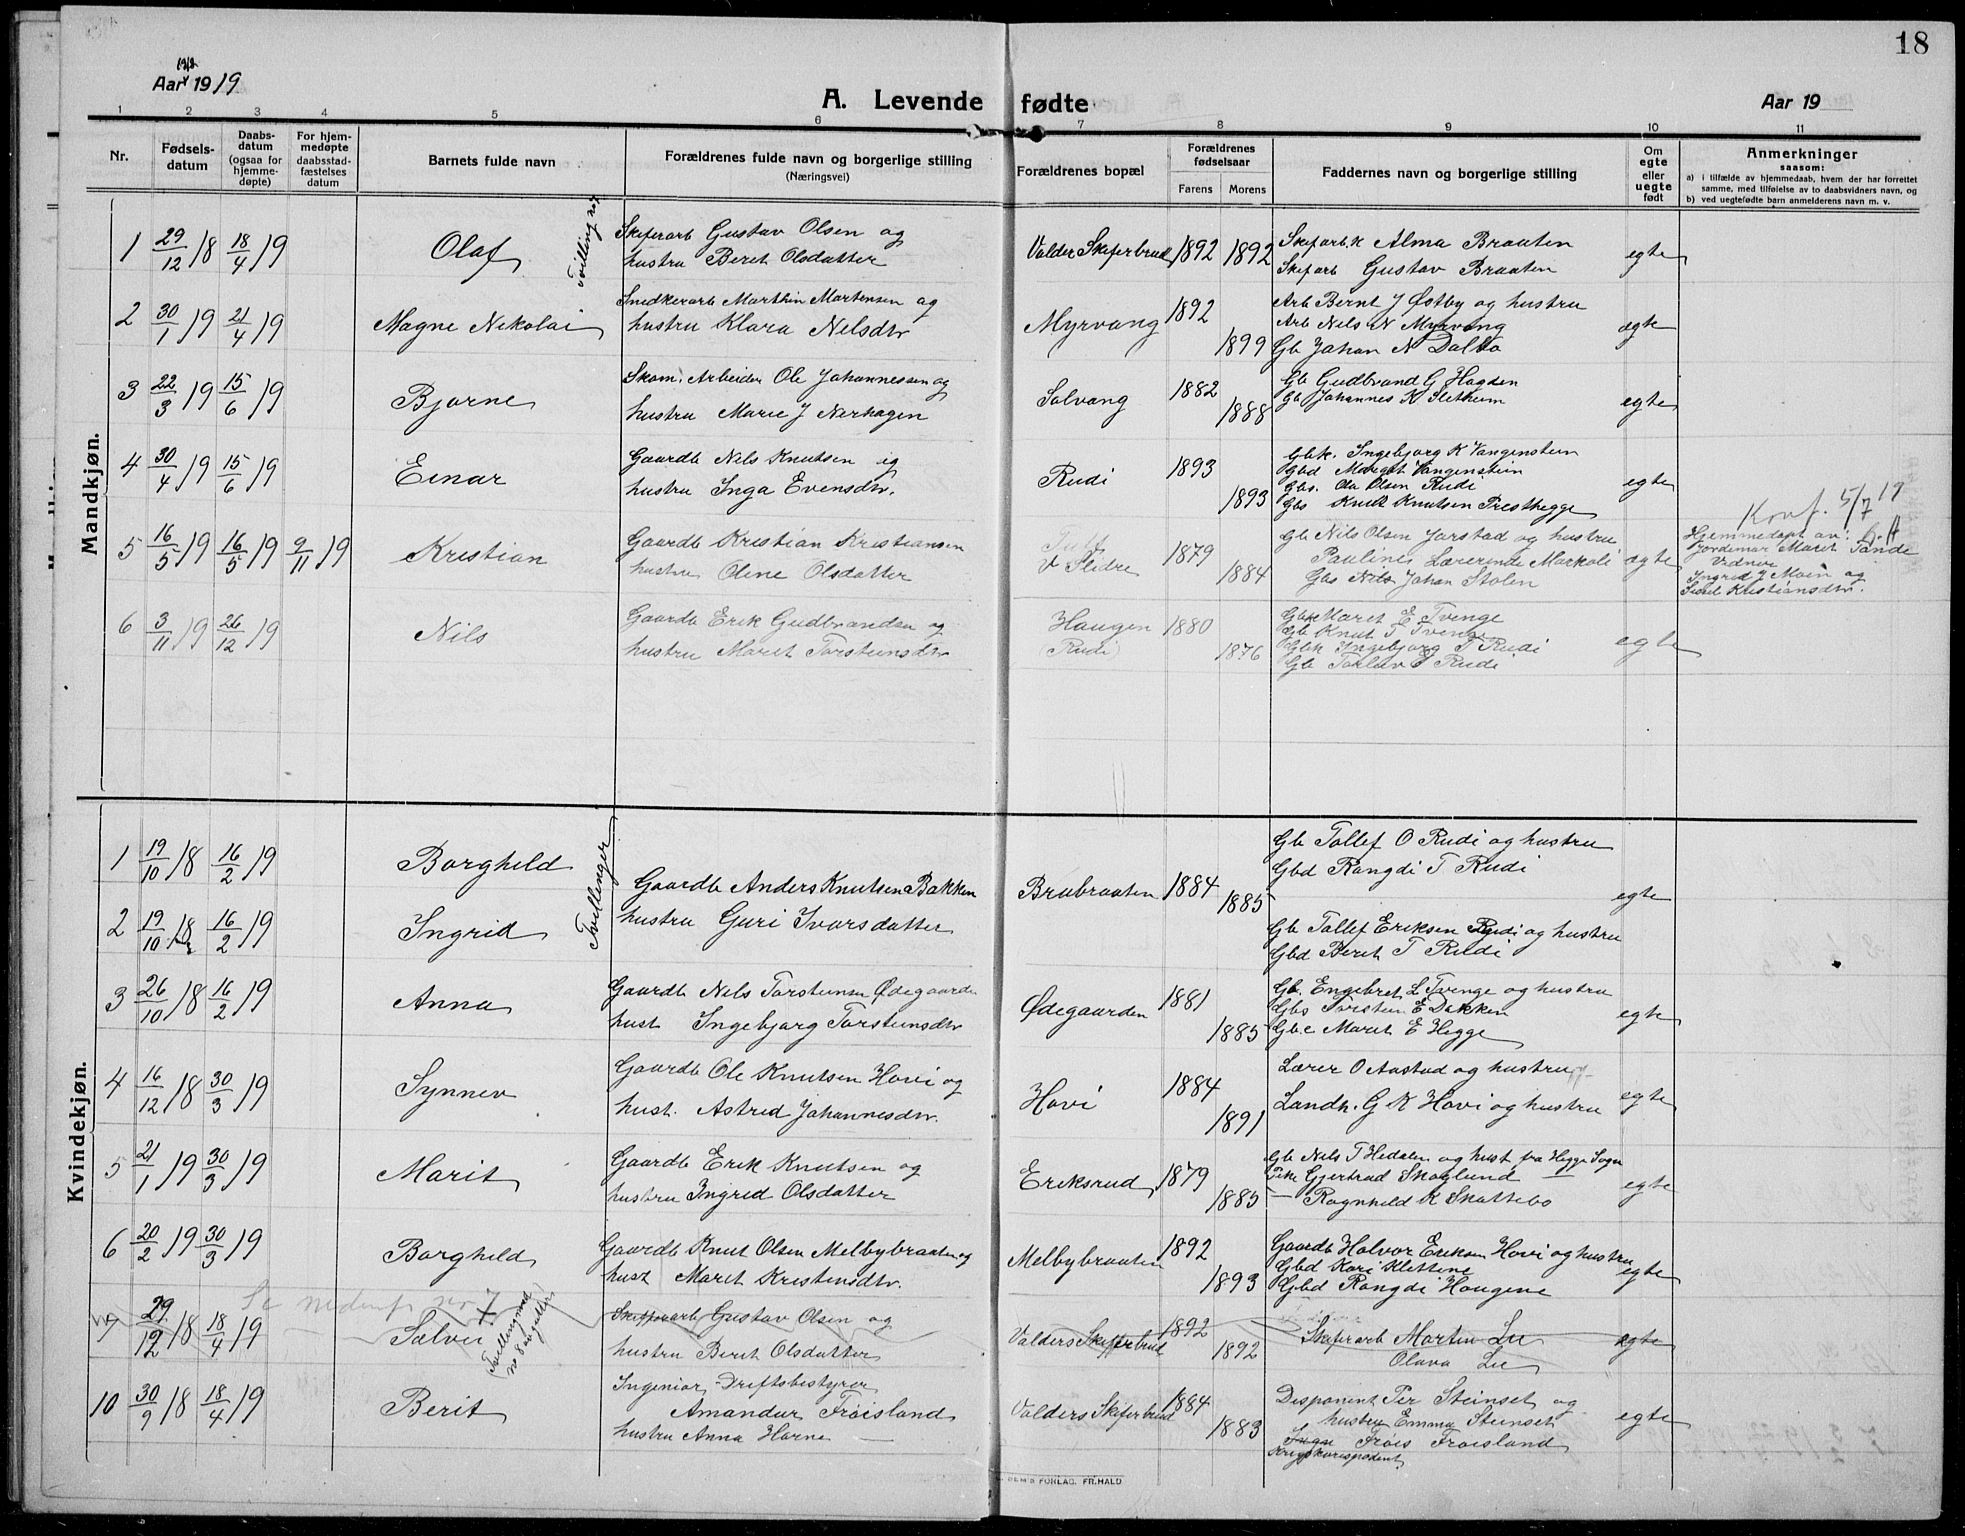 18
1918
Aar 1919
A. Levende fødte
Aar 19
1 2 3 4 5 6 7 8 9 10 11
Nr.
Fødsels-
datum
Daabs-
datum
(ogsaa for
hjemme-
døpte)
For hjem-
medøpte
daabsstad-
fæstelses
datum
Barnets fulde navn
Forældrenes fulde navn og borgerlige stilling
(Næringsvei)
Forældrenes bopæl
Forældrenes
fødselsaar
Farens Morens
Faddernes navn og borgerlige stilling
Om
egte
eller
uegte
født
Anmerkninger
saasom:
a) i tilfælde av hjemmedaab, hvem der har forrettet
samme, med tilføielse av to daabsvidners navn, og
b) ved uegtefødte barn anmelderens navn m. v.
Mandkjøn.
1 29/12 18 18/4 19 Olaf
Tvilling
Skiferarb Gustav Olsen og
hustru Berit Olsdatter
Valders Skiferbrud 1892 1892
Skifarb.k Alma Braaten
Skifarb Gustav Braaten
egte
2 30/1 19 21/4 19 Magne Nikolai
Snedkerarb Marthin Martensen og
hustru Klara Nilsdtr
Myrvang 1892 1899
Arb Bernt J Østby og hustru
Arb Nels N Myrvang
Gb Johan N Dalbo
egte
3 22/3 19 15/6 19 Bjarne
Skom. Arbeider Ole Johannessen og
hustru Marie J Nerhagen
Solvang 1882 1888
Gb Gudbrand G Hagden
Gb Johannes K Sletheim
egte
4 30/4 19 15/6 19 Einar
Gaardb Nils Knutsen og
hustru Inga Evensdtr.
Rudi 1893 1893
Gbk. Ingebjørg K Vangenstein
Gbd Margit Vangenstein
Gbs. Ola Olsen Rudi
Gbs Knut Knutsen Presthegge
egte
5 16/5 19 16/5 19 9/11 19 Kristian
Gaardb Kristian Kristiansen
hustru Oline Olsdatter
V Slidre 1879 1884
Gb Nils Olsen Jarstad og hustru
Pauline, Lærerinde Markali
Gbs Nils Johan Stolen
egte
Konf. 5/7 19
Hjemmedøpt av
Jordemor Marit Tande
Vidner
Ingrid J Moen og
Sidsel Kristiansdtr.
6 3/11 19 26/12 19 Nils
Gaardb Erik Gudbrandsen og
hustru Marit Torsteinsdtr
Haugen
(Rudi)
1880 1876
Gbk Marit E Tvenge
Gb Knut T Tvenge
Gbk Ingebjørg T Rudi
Gb Torleiv E Rudi
egte
Kvindekjøn.
1 19/10 18 16/2 19 Borghild
Tvillinger
Gaardb Anders Knutsen Bakken
hustru Guri Ivarsdatter
Brubraaten 1884 1885
Gb Tollef O Rudi og hustru
Gbd Rangdi T Rudi
egte
2 19/10 18 16/2 19 Ingrid
Gb Tollef Eriksen Rudi og hustru
Gbd Berit T Rudi
3 26/10 18 16/2 19 Anna
Gaardb Nils Torsteinsen Ødegaarden
hust Ingebjørg Torsteinsdtr
Ødegaarden 1881 1885
Gb. Engebret L Tvenge og hustru
Gbs Torstein E Bakken
Gbe Marit E Hegge
egte
4 16/12 18 30/3 19 Synnev
Gaardb Ole Knutsen Hovi og
hust. Astrid Johannesdtr.
Hovi 1884 1891
Lærer O Aastad og hustru
Landh. G K Hovi og hustru
egte
5 21/1 19 30/3 19 Marit
Gaardb Erik Knutsen og
hustru Ingrid Olsdatter
Eriksrud 1879 1885
Gb Nils T Hedalen og hust fra Hegge Sogn
Pike Gjertrud Skoglund —
— Ragnhild K Skattebo
egte
6 20/2 19 30/3 19 Borghild
Gaardb Knut Olsen Melbybraaten og
hust Marit Kristensdtr.
Melbybraaten 1892 1893
Gaardb Halvor Eriksen Hovi og hustru
Gbd Kari Klettene
Gbd Rangdi Haugene
egte
Se nedenf no 7
7 29/12 18 18/4 19 Salvei
Tvilling med
no 8 ang gutter
Skiferarb Gustav Olsen og
hustru Berit Olsdatter
Valders Skiferbrud 1892 1892
Skiferarb Martin Lie
Olava Lie
egte
10 30/9 18 18/4 19 Berit
Ingeniør, Driftsbestyrer
Amandus Frøisland
hustru Anna Horne
Valders Skiferbrud 1884 1883
Disponent Per Steinset og
hustru Emma Steinset
Frøis Froisland
Krigskorrespodent
egte
FORLAG. FR. HALD